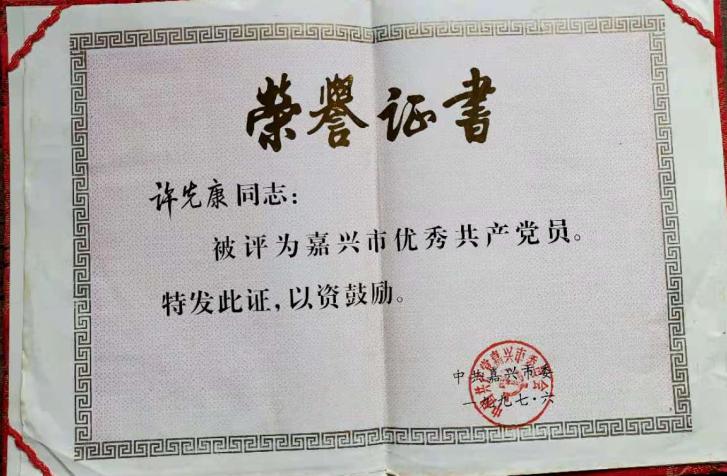 荣誉证书
许先康同志：
被评为嘉兴市优秀共产党员。
特发此证，以资鼓励。
中共嘉兴市委
一九九七·六
中国共产党嘉兴市委员会